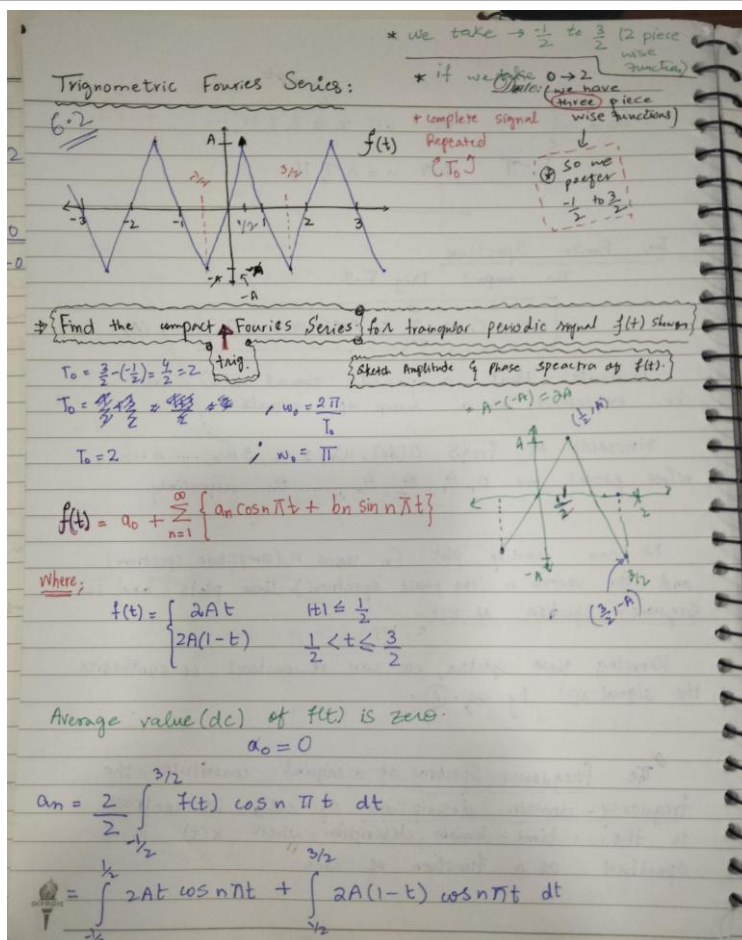 * we take → -1/2 to 3/2 (2 piece
wise
function)
* if we take 0 → 2
Date:
(we have
three piece
wise functions)
↓
* so we
prefer
-1/2 to 3/2
Trignometric Fouries Series:
6.2
+ complete signal
Repeated
{T₀}
A
f(t)
3/2
-3 -2 -1 1/2 1 2 3
-A
-A
⇒ {Find the compact Fouries Series} for traingular periodic signal f(t) shown}
{trig.}
{Sketch Amplitude & phase speactra of f(t).}
T₀ = 3/2 - (-1/2) = 4/2 = 2
T₀ =
, ω₀ = 2π/T₀
T₀ = 2 ; ω₀ = π
= A-(-A) = 2A
(1/2, A)
A
1/2
2
-A
3/2
(3/2, -A)
f(t) = a₀ + ∞ Σ n=1 { aₙ cos nπt + bₙ sin nπt}
Where;
f(t) = { 2At |t| ≤ 1/2
2A(1-t) 1/2 < t ≤ 3/2
Average value (dc) of f(t) is zero.
a₀ = 0
aₙ = 2/2 ∫ -1/2 3/2 f(t) cos n π t dt
= ∫ -1/2 1/2 2At cos nπt + ∫ 1/2 3/2 2A(1-t) cos nπt dt